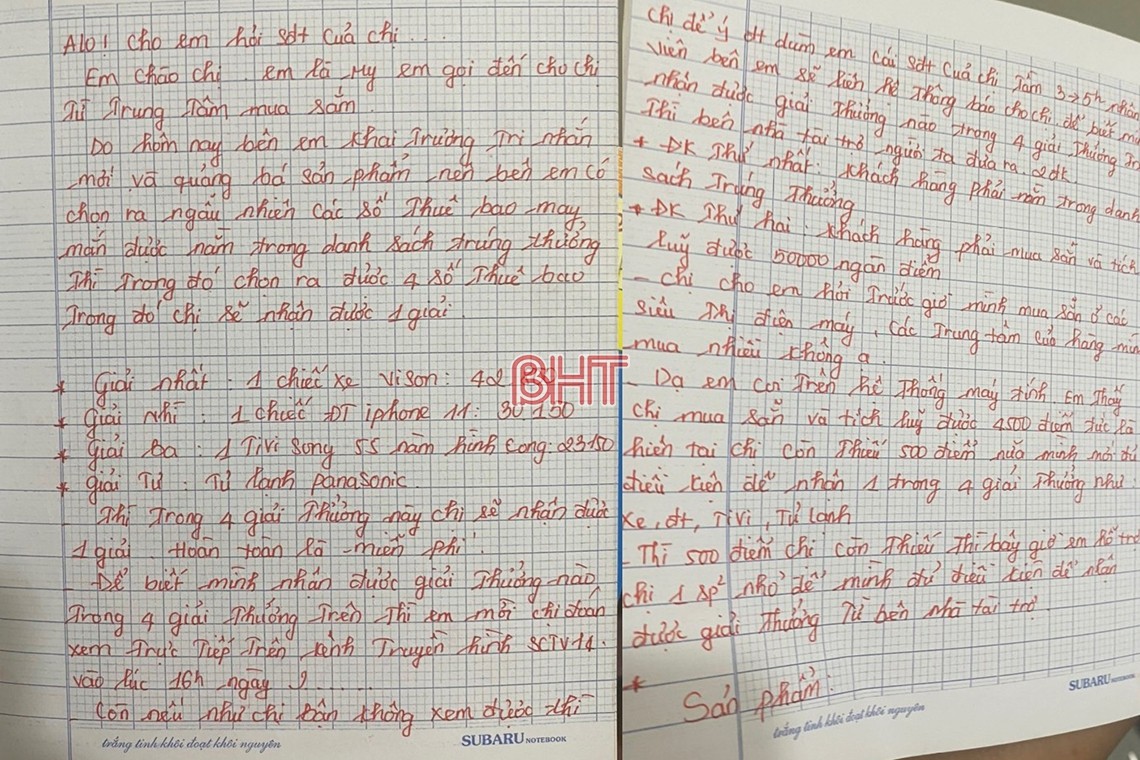 Alo! cho em hỏi sđt của chị ...
Em chào chị em là My em gọi đến cho chị
Từ Trung Tâm mua sắm.
Do hôm nay bên em khai Trương Tri nhãn
mới và quảng bá sản phẩm nên bên em có
chọn ra ngẫu nhiên các số Thuê bao may
mắn được nằm trong danh sách trúng thưởng
Thì Trong đó chọn ra được 4 số Thuê bao
Trong đó chị sẽ nhận được 1 giải.
* Giải nhất : 1 chiếc xe vison: 42
* Giải Nhì : 1 chiếc ĐT iphone 11: 30150
* Giải ba : 1 Tivi Song 55 năm hình cong: 23150
* Giải Tư : Tủ lạnh panasonic
Thì Trong 4 giải Thưởng này chị sẽ nhận được
1 giải Hoàn toàn là miễn phí.
- Để biết mình nhận được giải Thưởng nào
Trong 4 giải Thưởng Trên Thì em mời chị đoán
xem Trực Tiếp Trên kênh Truyền hình SCTV14.
vào lúc 16h ngày 9.........
Còn nếu như chị bận không xem được thì
trắng tinh khôi đoạt khôi nguyên
SUBARU NOTEBOOK
BHT
chị để ý đt dùm em cái sđt của chị Tầm 3→5h nhân
viên bên em sẽ liên hệ Thông báo cho chị để biết mình
nhận được giải Thưởng nào trong 4 giải Thưởng Tr
Thì bên nhà tài trở người ta đưa ra 2đk
+ ĐK Thứ nhất: khách hàng phải nằm trong danh
sách Trúng Thưởng
+ ĐK Thứ hai: khách hàng phải mua sắn và tích
luỹ được 50000 ngàn điểm
- chị cho em hỏi Trước giờ mình mua sắn ở các
siêu Thị điện máy, các Trung tâm cửa hàng mình
mua nhiều không ạ.
- Dạ em coi Trên hệ Thống máy tính Em Thấy
chị mua sắn và tích luỹ được 4500 điểm tức là
hiện tại chị còn Thiếu 500 điểm nữa mình mới đủ
điều kiện để nhận 1 trong 4 giải Thưởng như:
xe, đt, Tivi, Tủ lạnh
- Thì 500 điểm chị còn Thiếu Thì bây giờ em hỗ trợ
chị 1 sp² nhỏ để mình đủ điều kiện để nhận
được giải Thưởng Từ bên nhà tài trở.
* Sản phẩm:
trắng tinh khôi đoạt khôi nguyên
SUBARU NOTEBOOK